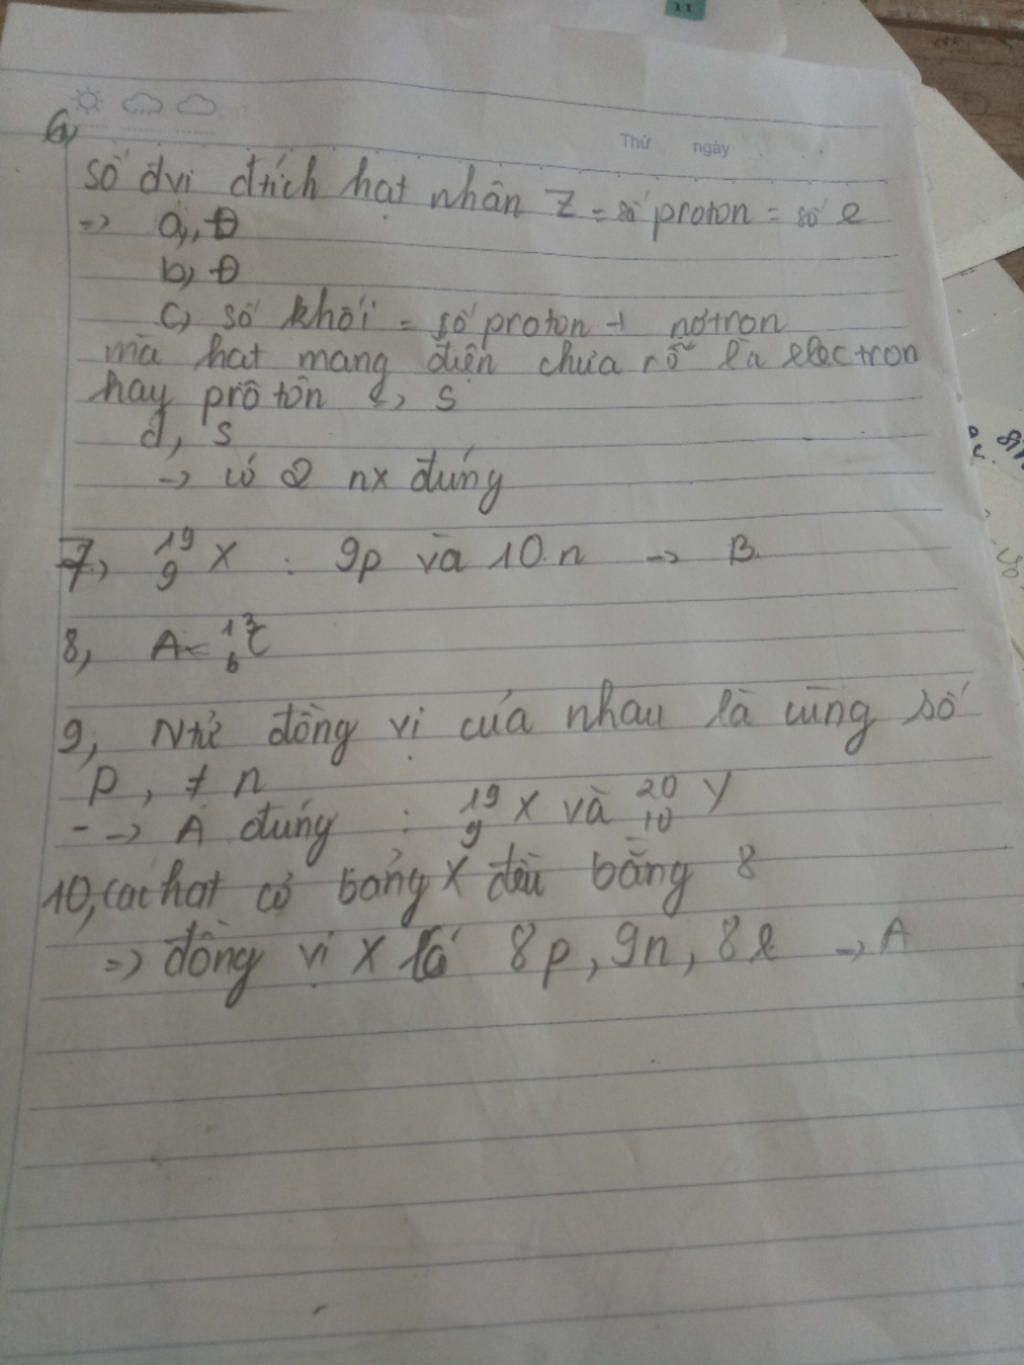 11
Thứ ngày
6,
số đvị đtích hạt nhân Z = số proton = số e
=> a, Đ
b, Đ
c, số khối = số proton + nơtron
mà hạt mang điện chưa rõ là electron
hay prôtôn e, S
d, S
-> có 2 nx đúng
7, ¹⁹₉X : 9p và 10 n -> B.
8, A
9, Ntử đồng vị của nhau là cùng số
p, ≠ n
--> A đúng : ¹⁹₉X và ²⁰₁₀Y
10, các hạt cỏ bảng X đều bằng 8
=> đồng vị X là 8p, 9n, 8e -> A